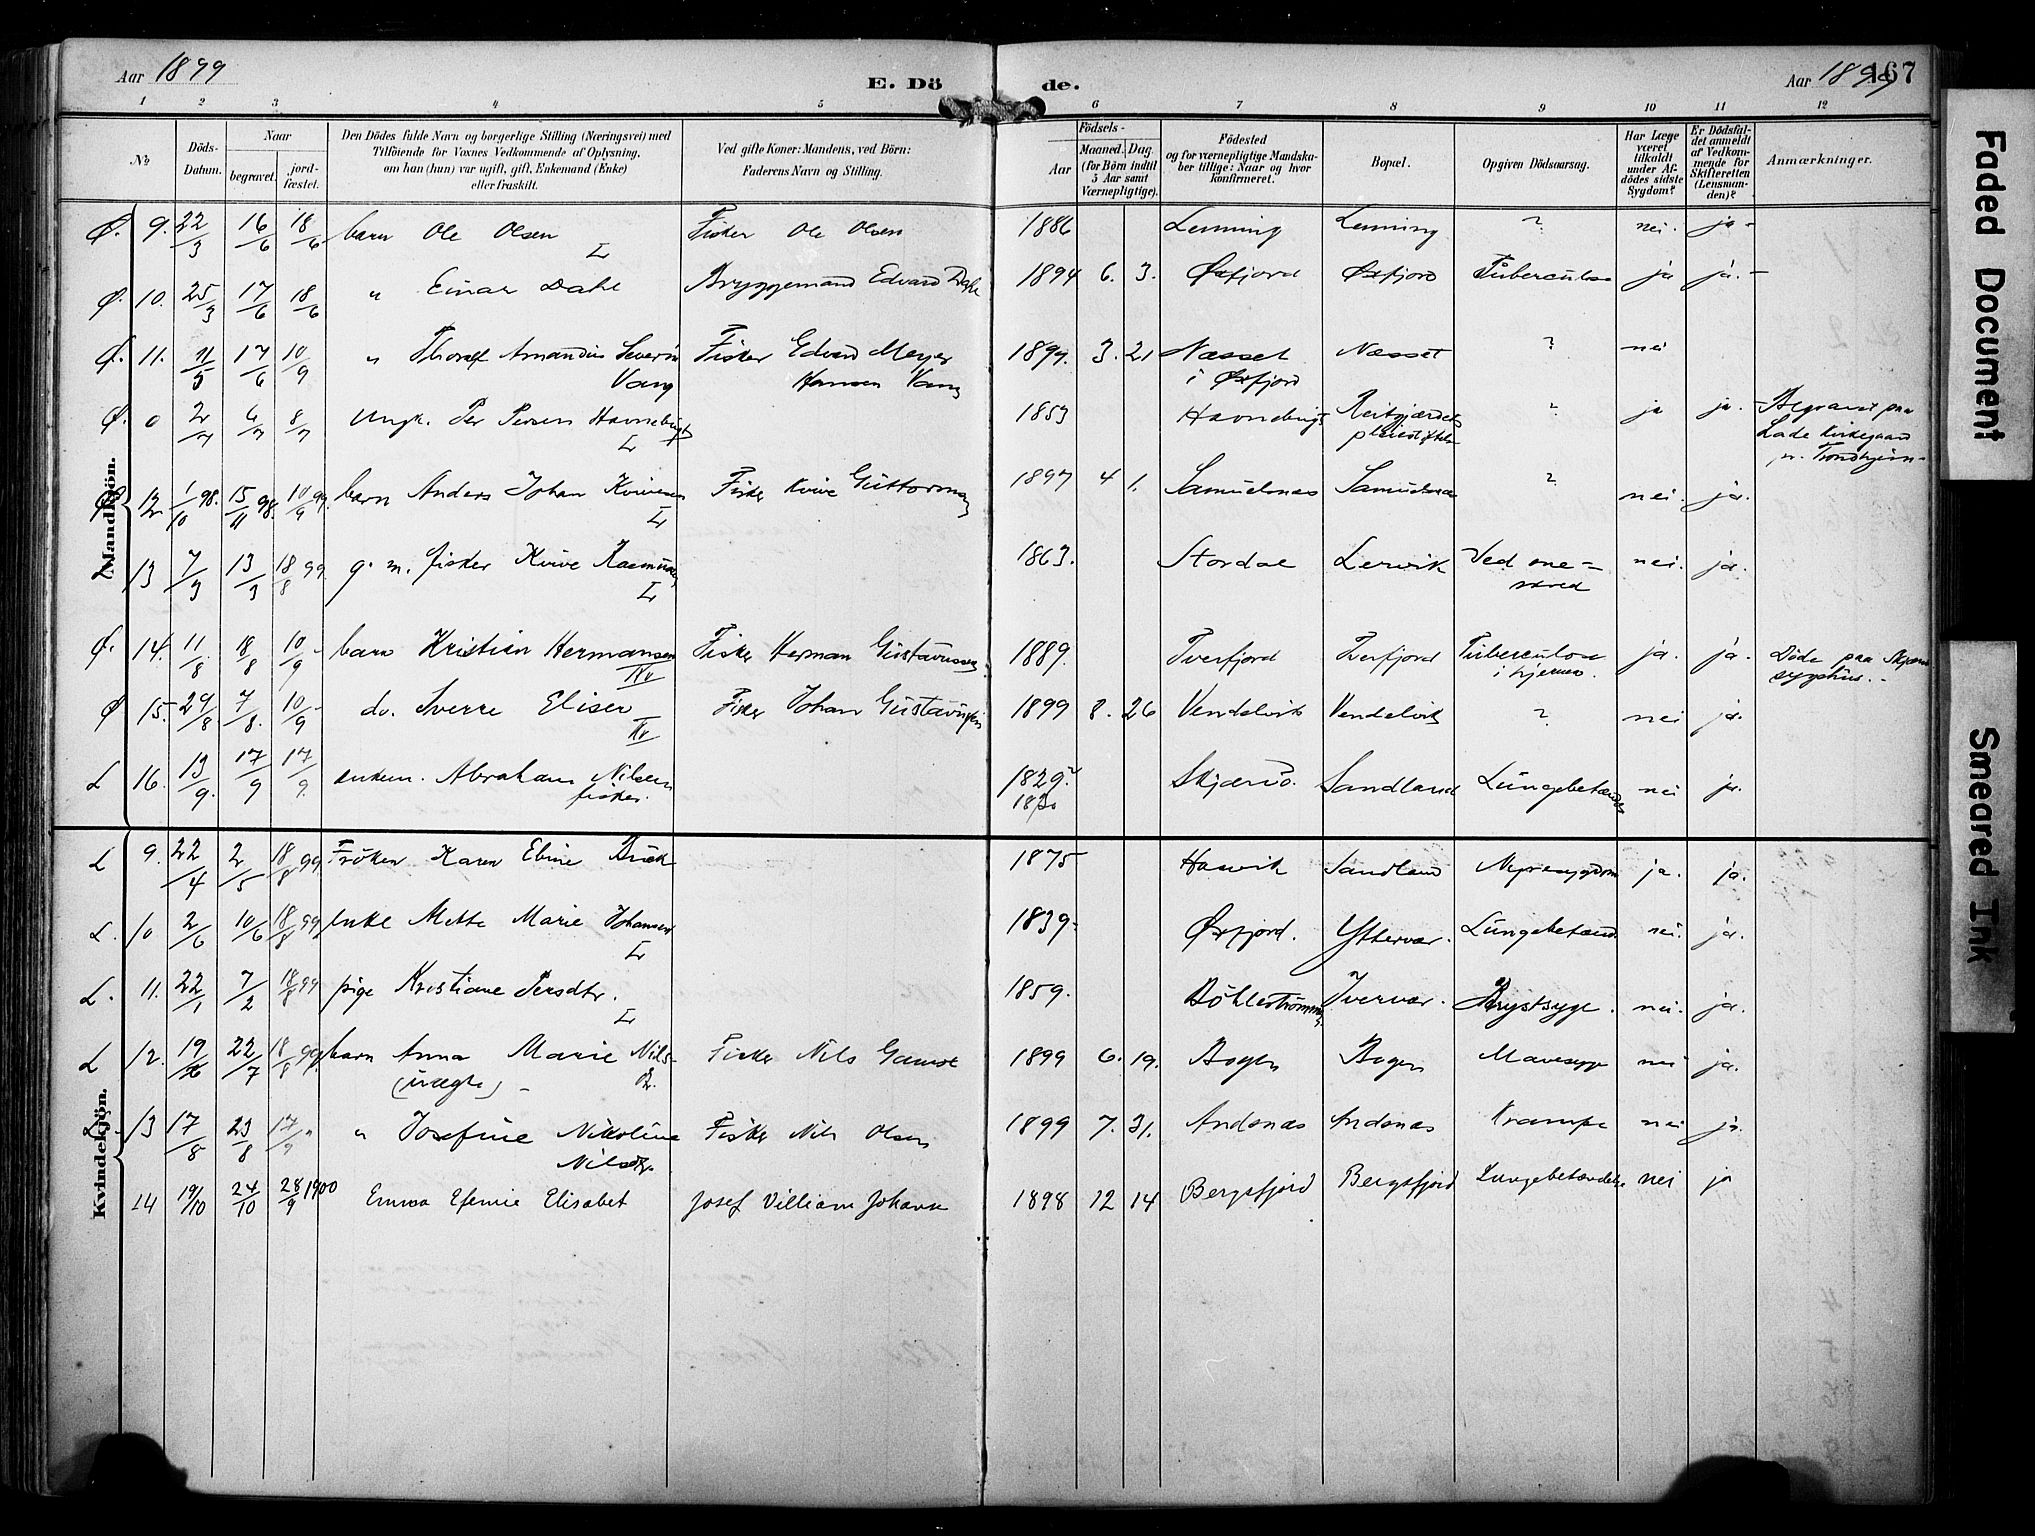 Aar 1899
E. Dö de.
Aar 1899
167
1 2 3 4 5 6 7 8 9 10 11 12
No
Döds-Datum.
Naar
begravet.
jord-fæstet.
Den Dödes fulde Navn og borgerlige Stilling (Næringsvei) med
Tilföiende for Voxnes Vedkommende af Oplysning,
om han (hun) var ugift, gift, Enkemand (Enke)
eller fraskilt.
Ved gifte Koner: Mandens, ved Börn:
Faderens Navn og Stilling.
Födsels-
Aar
Maaned. Dag
(for Börn indtil
5 Aar samt
Værnepligtige).
Födested
og for værnepligtige Mandska-
ber tillige: Naar og hvor
konfirmeret.
Bopæl.
Opgiven Dödsaarsag.
Har Læge
været
tilkaldt
under Af-
dödes sidste
Sygdom?
Er Dödsfal-
det anmeldt
af Vedkom-
mende for
Skifteretten
(Lensman-
den)?
Anmærkninger.
Mandkjön.
Ø. 9. 22/3 16/6 18/6 barn Ole Olsen Fisker Ole Olsen 1886 Lenning Lenning ? nei. ja-
L
Ø. 10. 25/3 17/6 18/6 " Einar Dahl Bryggemand Edvard Dahl 1894 6. 3. Øxfjord Øxfjord Tuberculose ja ja.-
Ø. 11. 11/5 17/6 10/9 " Thoralf Amandus Severin Fisker Edvard Meyer 1899. 3. 21 Næsset Næsset ? nei
Vang Hansen Vang i Øxfjord
Ø. 0 2/7 6/7 8/7 Ungk. Per Persen Havnebugt 1853 Havnebugt Reitgjærdets ? ja ja.- Begravet paa
L pleiestiftelse Lade Kirkegaard
pr. Trondhjem-
12. 1/10 98. 15/11 98. 10/9 99. barn Anders Johan Kvivesen Fisker Kvive Guttormsen 1897 4 1. Samuelsnes Samuelsnes ? nei. ja.
L
13 7/3 13/3 18/8 99 g. m. fisker Kvive Rasmussen 1863. Stordal Lervik Ved sne= nei. ja.
L skred
Ø. 14. 11/8 18/8 10/9 barn Kristian Hermansen Fisker Herman Gustavussen 1889. Tverfjord Tverfjord Tuberculose ja. ja. Döde paa
Kv i hjernen. sygehus.-
Ø 15. 29/8 7/8. 10/9 do. Sverre Eliser Fisker Johan Gustavusen 1899 8. 26 Vendelvik Vendelvik ? nei ja.
Kv
L 16. 13/9. 17/9 17/9. enkem. Abraham Nilsen 1829. Skjærvö. Sandland Lungebetændelse nei ja.
fisker.
Kvindekjön.
L 9. 22/4 2/5 18/8 99 Fröken Karen Eline Buck 1875 Hasvik Sandland Nyresygdom ja. ja.
L. 10 2/6 10/6 18/8 99 enke Mette Marie Johansen 1839. Øxfjord. Yttervær. Lungebetænd. nei. ja.
L
L. 11. 22/1 7/2 18/8 99 pige Kristiane Persdtr. 1859. Bökleströmmen Ivervær. Brystsyge. nei. ja.
L
L 12. 19/ 22/7 18/8 99. barn Anna Marie Nils- Fisker Nils Gamst 1899 6. 19. Bogen Bogen Mavesyge nei ja.
(uægte)- dtr.
L 13 17/8 23/8 17/9 " Josefine Nikoline Fisker Nils Olsen 1899 7. 31. Andsnæs Andsnæs Krampe nei ja.
Nilsdtr.
14 19/10 24/10 28/9 1900 Emma Efemie Elisabet Josef Villiam Johans 1898 12 14 Bergsfjord Bergsfjord Lungebetændelse nei ja
Faded Document
Smeared Ink